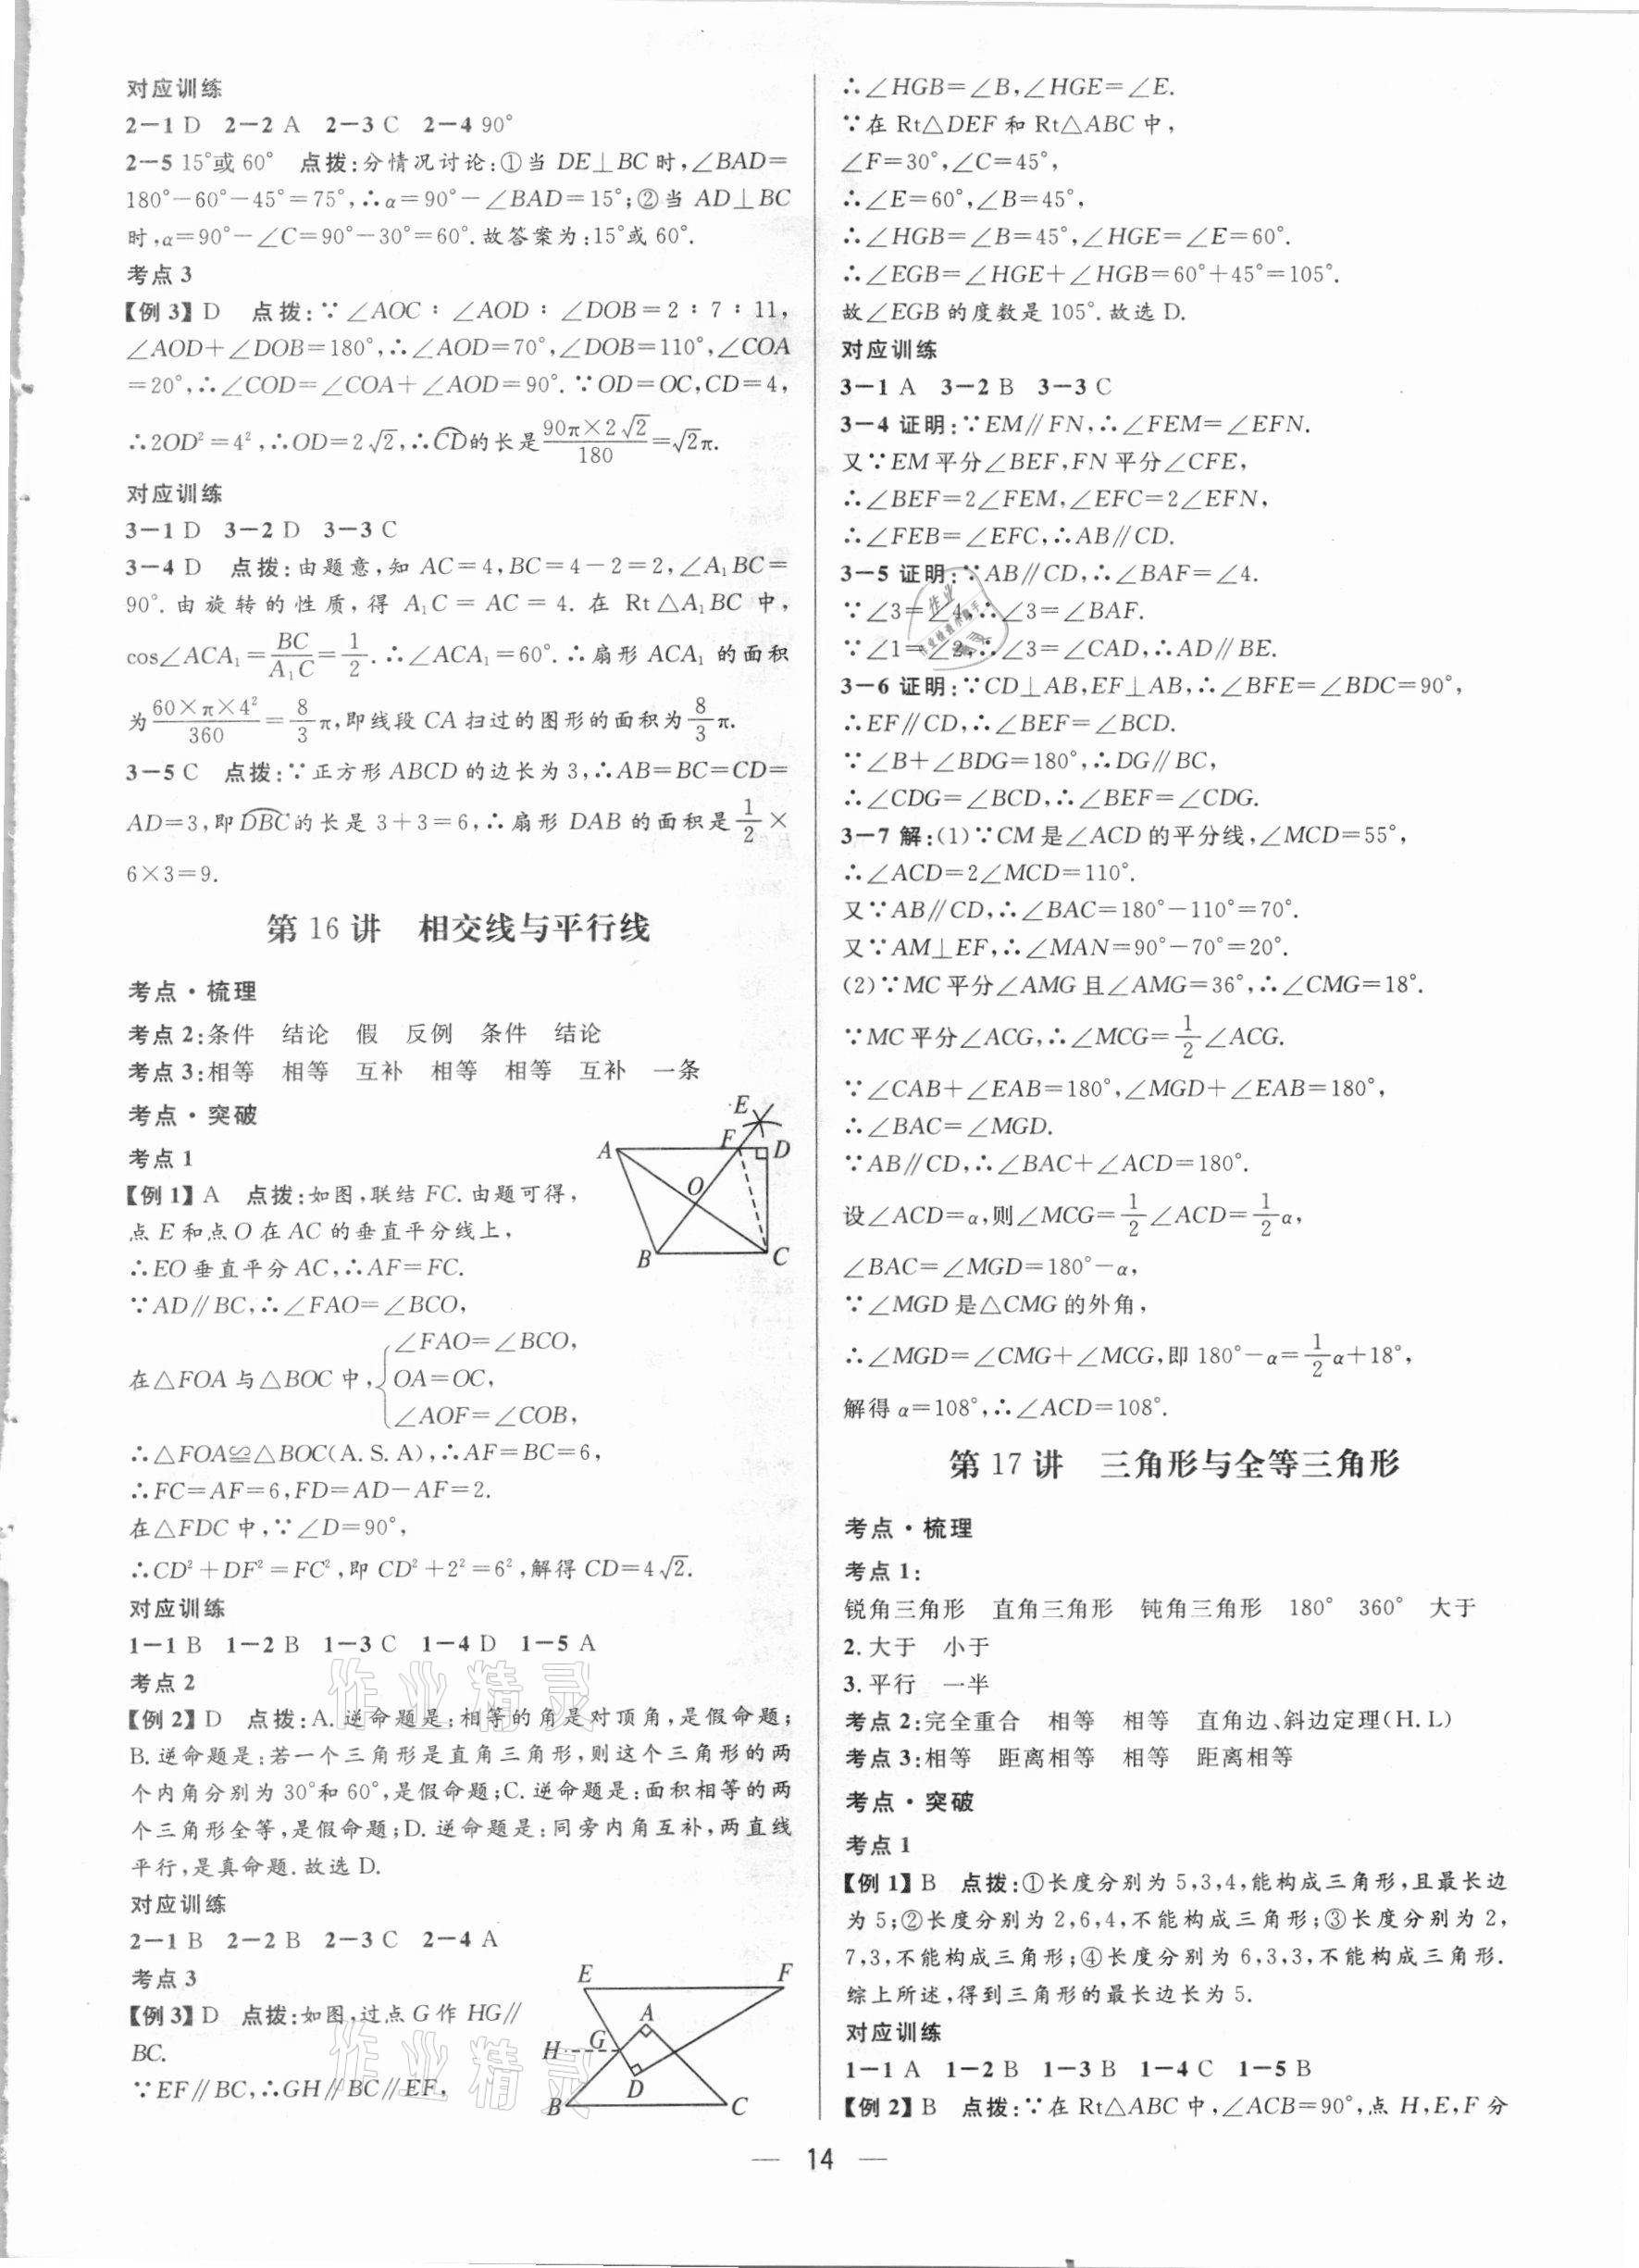 对应训练
2－1 D　2－2 A　2－3 C　2－4 90°
2－5 15°或 60°　点拨:分情况讨论:①当 DE⊥BC 时,∠BAD＝
180°－60°－45°＝75°,∴α＝90°－∠BAD＝15°;②当 AD⊥BC
时,α＝90°－∠C＝90°－30°＝60°.故答案为:15°或 60°.
考点 3
【例 3】D　点拨:∵∠AOC∶∠AOD∶∠DOB＝2∶7∶11,
∠AOD＋∠DOB＝180°,∴∠AOD＝70°,∠DOB＝110°,∠COA
＝20°,∴∠COD＝∠COA＋∠AOD＝90°.∵OD＝OC,CD＝4,
∴2OD²＝4²,∴OD＝2√2,∴C͡D的长是90π×2√2/180＝√2π.
对应训练
3－1 D　3－2 D　3－3 C
3－4 D　点拨:由题意,知 AC＝4,BC＝4－2＝2,∠A₁BC＝
90°.由旋转的性质,得 A₁C＝AC＝4.在 Rt△A₁BC 中,
cos∠ACA₁＝BC/A₁C＝1/2.∴∠ACA₁＝60°.∴扇形 ACA₁ 的面积
为60×π×4²/360＝8/3π,即线段 CA 扫过的图形的面积为8/3π.
3－5 C　点拨:∵正方形 ABCD 的边长为 3,∴AB＝BC＝CD＝
AD＝3,即D͡BC的长是 3＋3＝6,∴扇形 DAB 的面积是1/2×
6×3＝9.
第 16 讲　相交线与平行线
考点·梳理
考点 2:条件　结论　假　反例　条件　结论
考点 3:相等　相等　互补　相等　相等　互补　一条
考点·突破
考点 1
【例 1】A　点拨:如图,联结 FC.由题可得,
点 E 和点 O 在 AC 的垂直平分线上,
∴EO 垂直平分 AC,∴AF＝FC.
∵AD∥BC,∴∠FAO＝∠BCO,
在△FOA 与△BOC 中,{∠FAO＝∠BCO,
OA＝OC,
∠AOF＝∠COB,
∴△FOA≌△BOC(A.S.A),∴AF＝BC＝6,
∴FC＝AF＝6,FD＝AD－AF＝2.
在△FDC 中,∵∠D＝90°,
∴CD²＋DF²＝FC²,即 CD²＋2²＝6²,解得 CD＝4√2.
A E F D O B C
对应训练
1－1 B　1－2 B　1－3 C　1－4 D　1－5 A
考点 2
【例 2】D　点拨:A.逆命题是:相等的角是对顶角,是假命题;
B.逆命题是:若一个三角形是直角三角形,则这个三角形的两
个内角分别为 30°和 60°,是假命题;C.逆命题是:面积相等的两
个三角形全等,是假命题;D.逆命题是:同旁内角互补,两直线
平行,是真命题.故选 D.
对应训练
2－1 B　2－2 B　2－3 C　2－4 A
考点 3
【例 3】D　点拨:如图,过点 G 作 HG∥
BC.
∵EF∥BC,∴GH∥BC∥EF,
E F A H G D B C
∴∠HGB＝∠B,∠HGE＝∠E.
∵在 Rt△DEF 和 Rt△ABC 中,
∠F＝30°,∠C＝45°,
∴∠E＝60°,∠B＝45°,
∴∠HGB＝∠B＝45°,∠HGE＝∠E＝60°.
∴∠EGB＝∠HGE＋∠HGB＝60°＋45°＝105°.
故∠EGB 的度数是 105°.故选 D.
对应训练
3－1 A　3－2 B　3－3 C
3－4 证明:∵EM∥FN,∴∠FEM＝∠EFN.
又∵EM 平分∠BEF,FN 平分∠CFE,
∴∠BEF＝2∠FEM,∠EFC＝2∠EFN,
∴∠FEB＝∠EFC,∴AB∥CD.
3－5 证明:∵AB∥CD,∴∠BAF＝∠4.
∵∠3＝∠4,∴∠3＝∠BAF.
∵∠1＝∠2,∴∠3＝∠CAD,∴AD∥BE.
3－6 证明:∵CD⊥AB,EF⊥AB,∴∠BFE＝∠BDC＝90°,
∴EF∥CD,∴∠BEF＝∠BCD.
∵∠B＋∠BDG＝180°,∴DG∥BC,
∴∠CDG＝∠BCD,∴∠BEF＝∠CDG.
3－7 解:(1)∵CM 是∠ACD 的平分线,∠MCD＝55°,
∴∠ACD＝2∠MCD＝110°.
又∵AB∥CD,∴∠BAC＝180°－110°＝70°.
又∵AM⊥EF,∴∠MAN＝90°－70°＝20°.
(2)∵MC 平分∠AMG 且∠AMG＝36°,∴∠CMG＝18°.
∵MC 平分∠ACG,∴∠MCG＝1/2∠ACG.
∵∠CAB＋∠EAB＝180°,∠MGD＋∠EAB＝180°,
∴∠BAC＝∠MGD.
∵AB∥CD,∴∠BAC＋∠ACD＝180°.
设∠ACD＝α,则∠MCG＝1/2∠ACD＝1/2α,
∠BAC＝∠MGD＝180°－α,
∵∠MGD 是△CMG 的外角,
∴∠MGD＝∠CMG＋∠MCG,即 180°－α＝1/2α＋18°,
解得 α＝108°,∴∠ACD＝108°.
第 17 讲　三角形与全等三角形
考点·梳理
考点 1:
锐角三角形　直角三角形　钝角三角形　180°　360°　大于
2.大于　小于
3.平行　一半
考点 2:完全重合　相等　相等　直角边、斜边定理(H.L)
考点 3:相等　距离相等　相等　距离相等
考点·突破
考点 1
【例 1】B　点拨:①长度分别为 5,3,4,能构成三角形,且最长边
为 5;②长度分别为 2,6,4,不能构成三角形;③长度分别为 2,
7,3,不能构成三角形;④长度分别为 6,3,3,不能构成三角形.
综上所述,得到三角形的最长边长为 5.
对应训练
1－1 A　1－2 B　1－3 B　1－4 C　1－5 B
【例 2】B　点拨:∵在 Rt△ABC 中,∠ACB＝90°,点 H,E,F 分
— 14 —
作业精灵
作业精灵